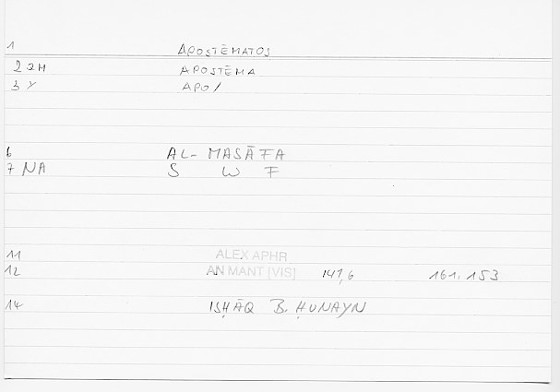 1 APOSTĒMATOS
2 2H APOSTĒMA
3 Y APO/
6 AL-MASĀFA
7 NA S W F
11 ALEX APHR
12 AN MANT [VIS] 147,6 161.153
14 ISḤĀQ B. ḤUNAYN